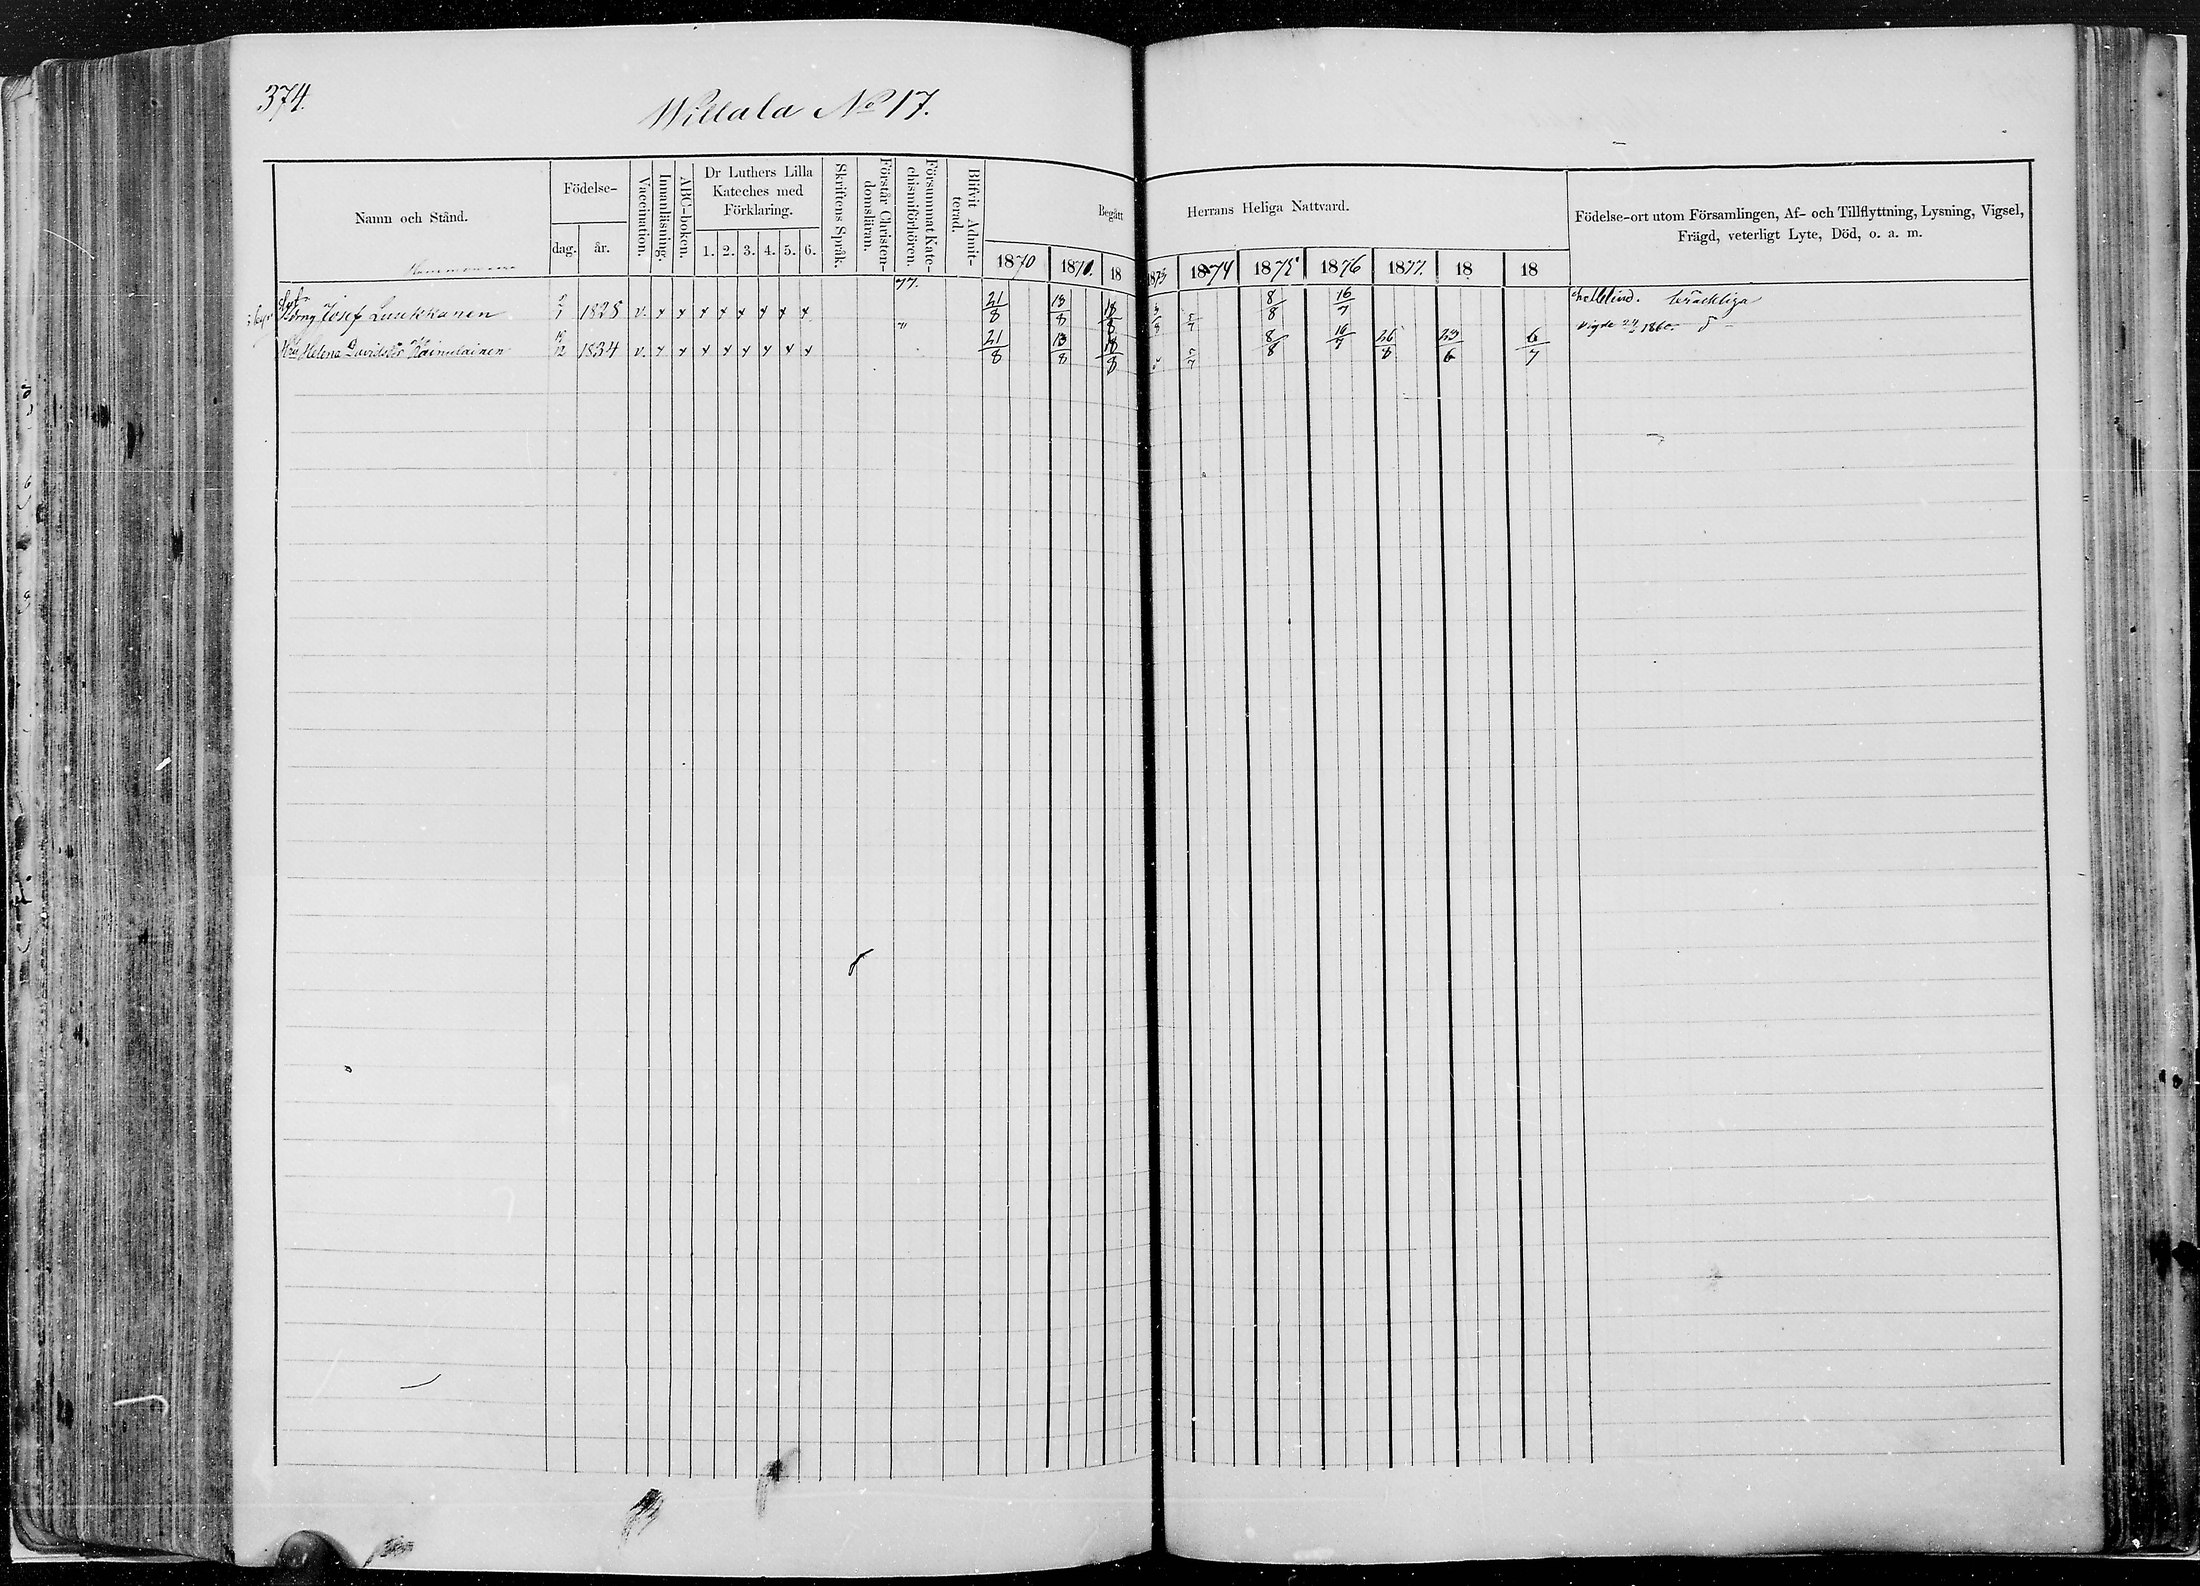 374.
Willala No 17.
Namn och Stånd.
Födelse-
dag.
år.
Vaccination.
Innanläsning.
ABC-boken.
Dr Luthers Lilla
Kateches med
Förklaring.
1. 2. 3. 4. 5. 6.
Skriftens Språk.
Förstår Christen-
domsläran.
Försummat Kate-
chismiförhören.
Blifvit Admit-
terad.
Begått Herrans Heliga Nattvard.
1870 1871. 18 1873 1874 1875 1876 1877. 18 18
Födelse-ort utom Församlingen, Af- och Tillflyttning, Lysning, Vigsel,
Frägd, veterligt Lyte, Död, o. a. m.
77.
Josef Luukkanen 1828 v. x x x x x x x x 21/8 13/8 18/8 5/7 8/8 16/7 bräckliga
Hru Helena Davidsdr Kainulainen 12 1834 v. x x x x x x x x 21/8 13/8 18/8 5/7 8/8 16/7 26/8 23/6 6/7 vigde 24/ 1860